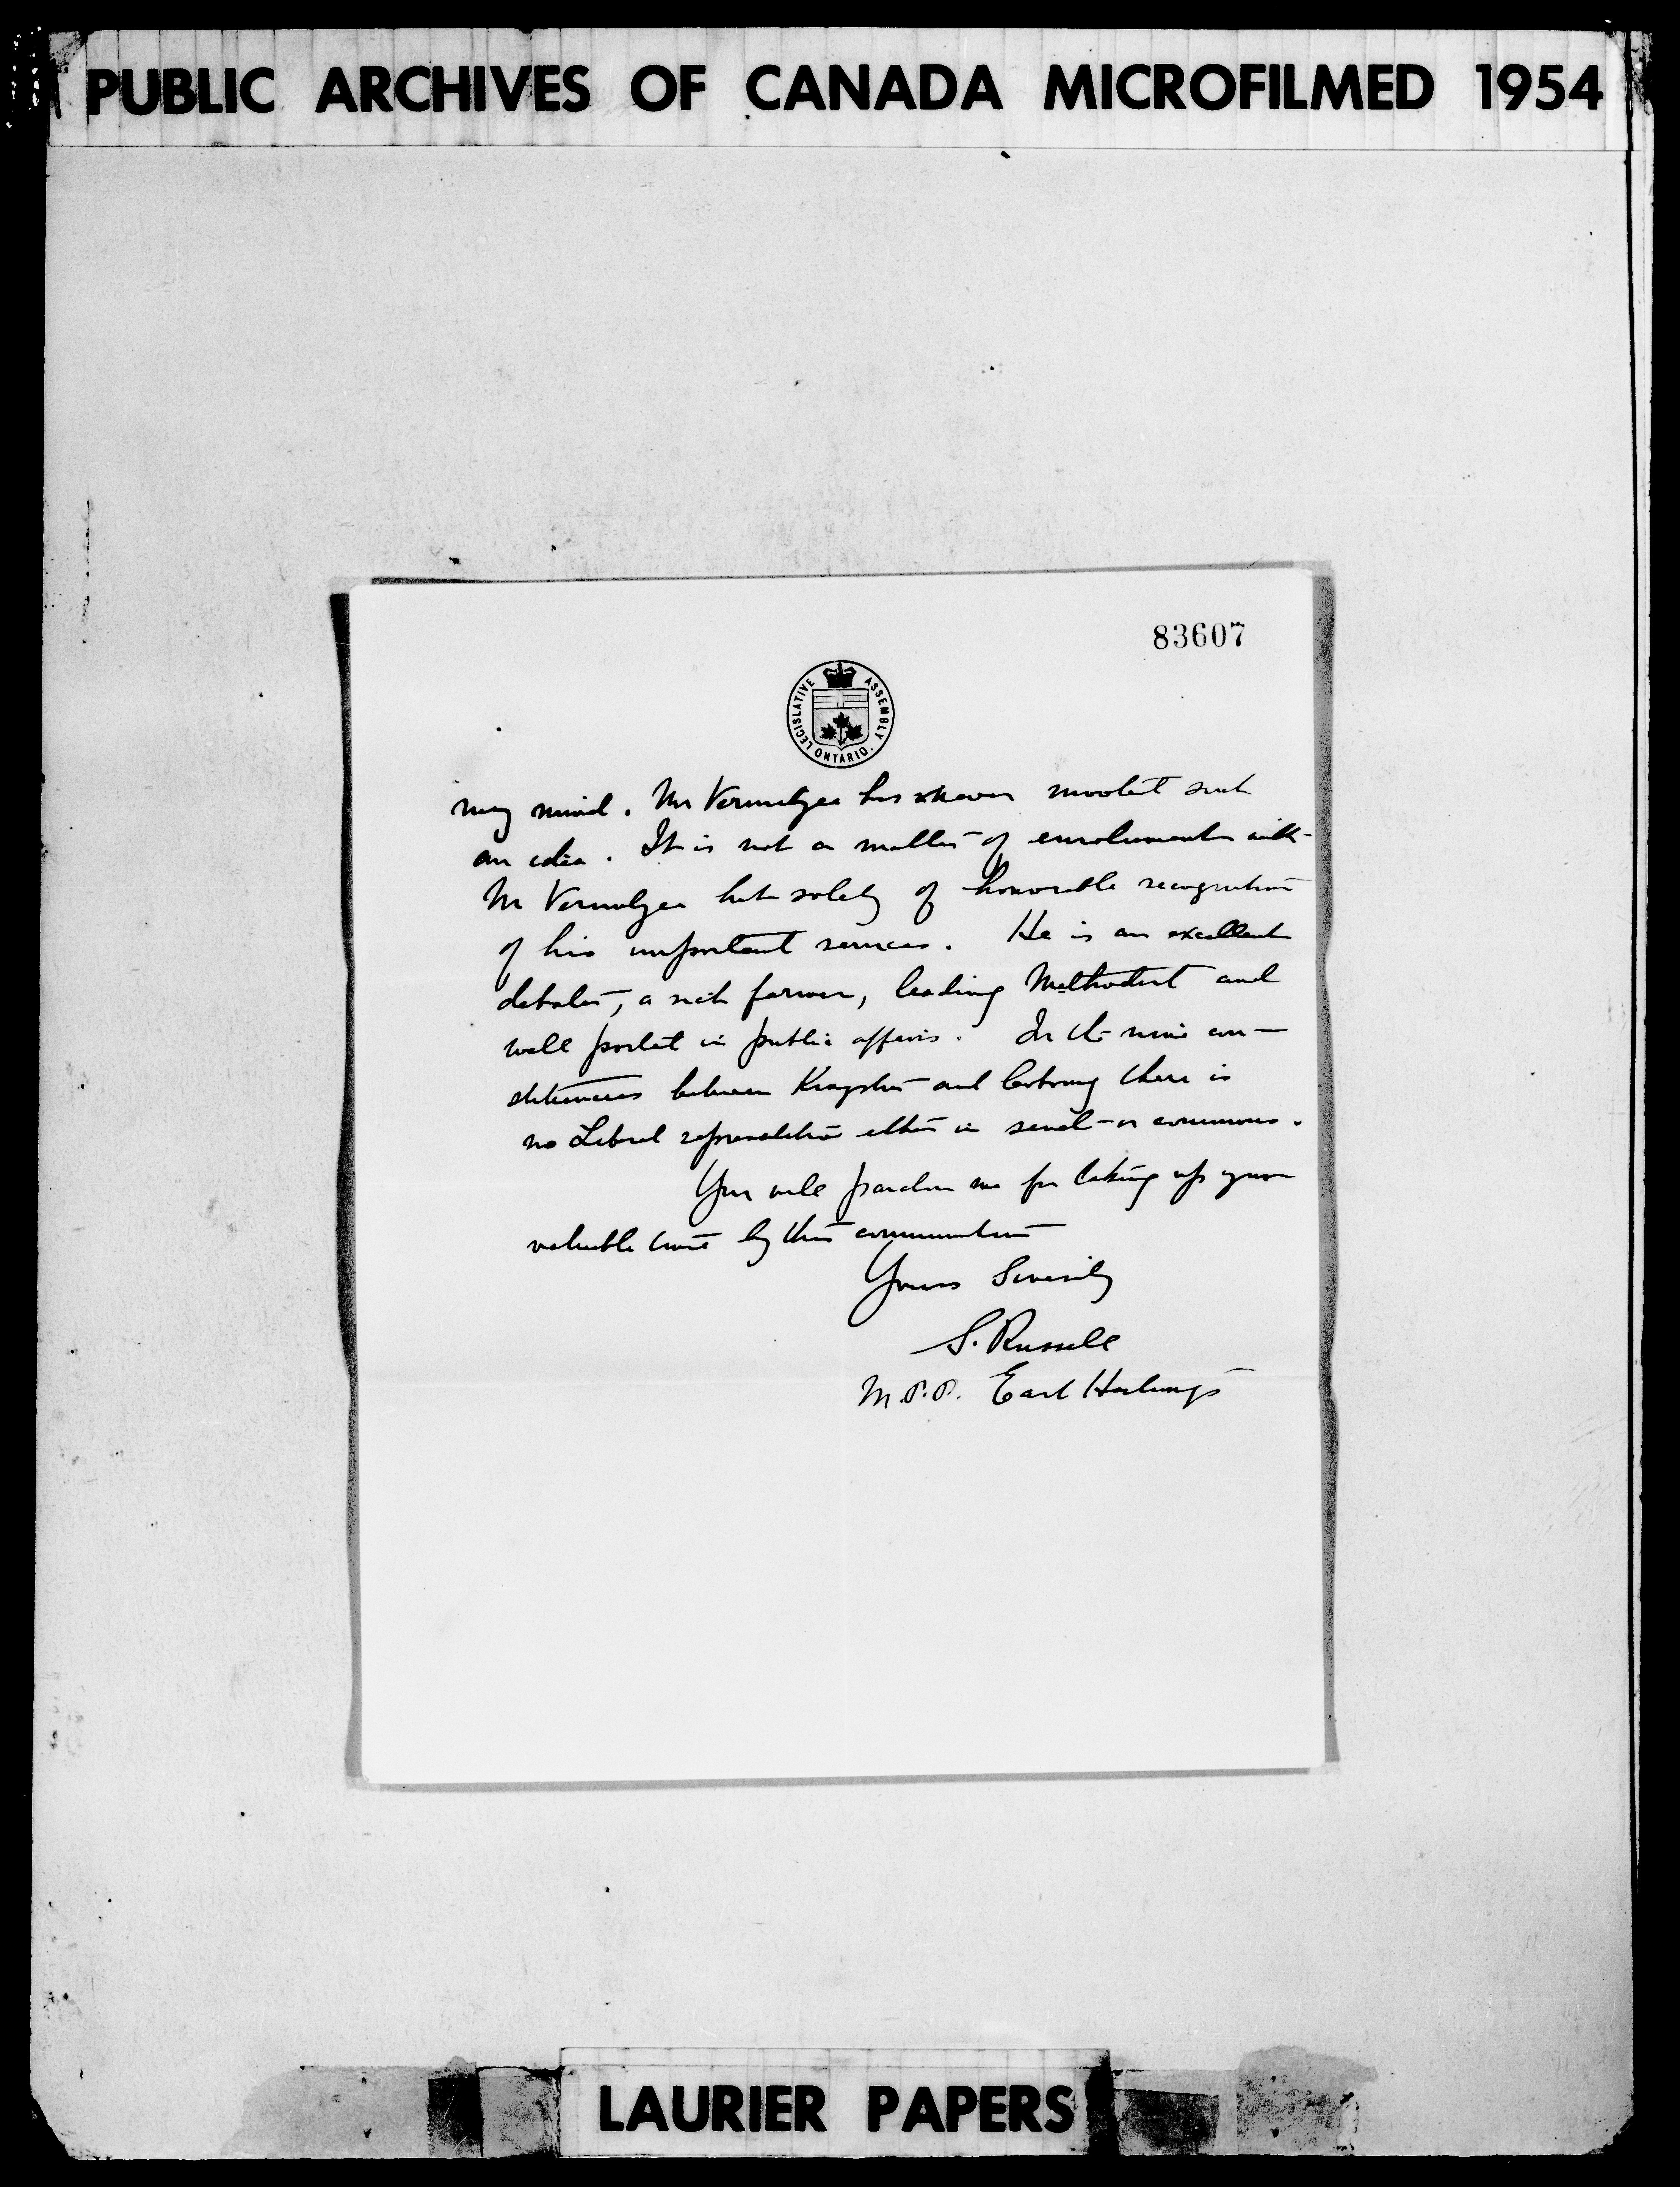 PUBLIC ARCHIVES OF CANADA MICROFILMED 1954
83607
LEGISLATIVE ASSEMBLY ONTARIO.
my mind. Mr Vermilyea has never mooted such
an idea. It is not a matter of emolument with
Mr Vermilyea but solely of honorable recognition
of his important services. He is an excellent
debater, a rich farmer, leading Methodist and
well posted in public affairs. In the nine con-
stituencies between Kingston and Cobourg there is
no Liberal representation either in senate or commons.
You will pardon me for taking up your
valuable time by this communication
Yours Sincerely
S. Russell
M.P.P. East Hastings
LAURIER PAPERS